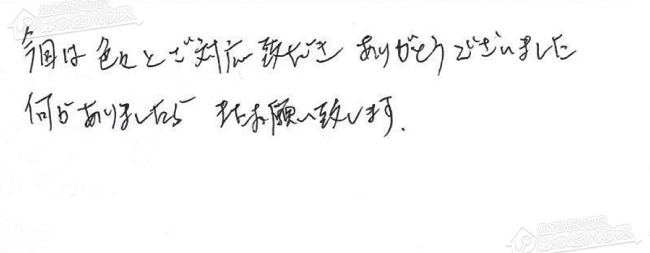 今回は色々とご対応致だき ありがとうございました
何かありましたら またお願い致します.